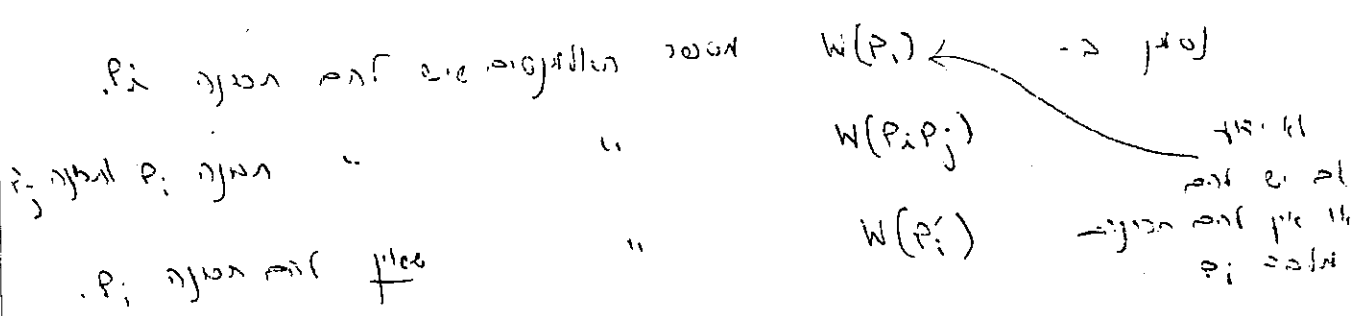 נסמן ב- W(Pᵢ) מספר האלמנטים שיש להם תכונה Pᵢ.
W(PᵢPⱼ) " " תכונה Pᵢ ותכונה Pⱼ
W(Pᵢ′) " שאין להם תכונה Pᵢ.
לא ידוע
אם יש להם
או אין להם תכונות
מלבד Pᵢ